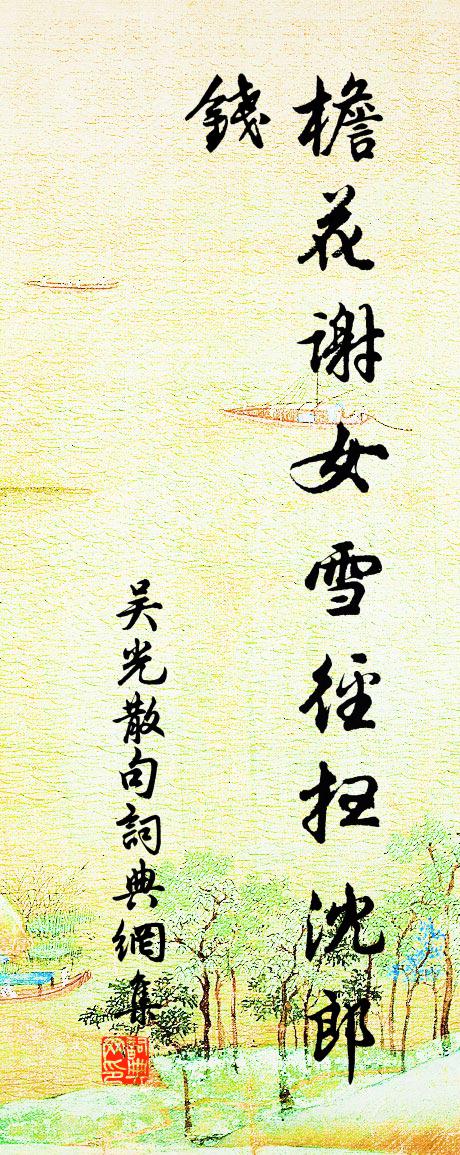 檐花谢女雪径扫沈郎
錢
吴光散句詞典網集